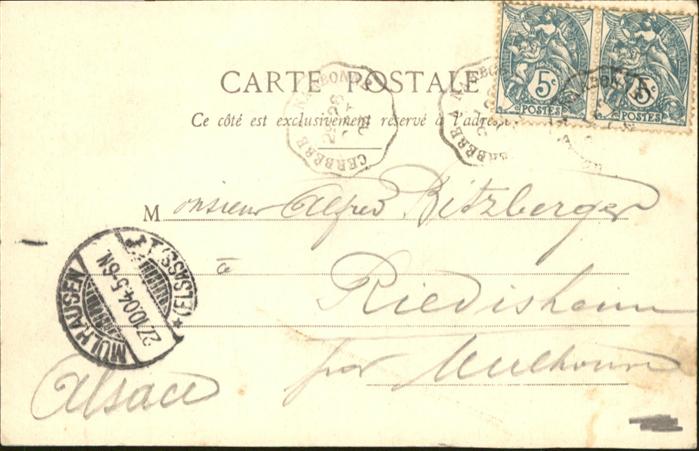 CARTE POSTALE
Ce côté est exclusivement réservé à l'adresse
5c 5c
POSTES POSTES
CERBERE NARBONNE
CERBERE NARBONNE
Monsieur Alfred Bitzberger
à Riedisheim
par Mulhouse
Alsace
MÜLHAUSEN
(ELSASS) 1
27.10.04.5-6N.